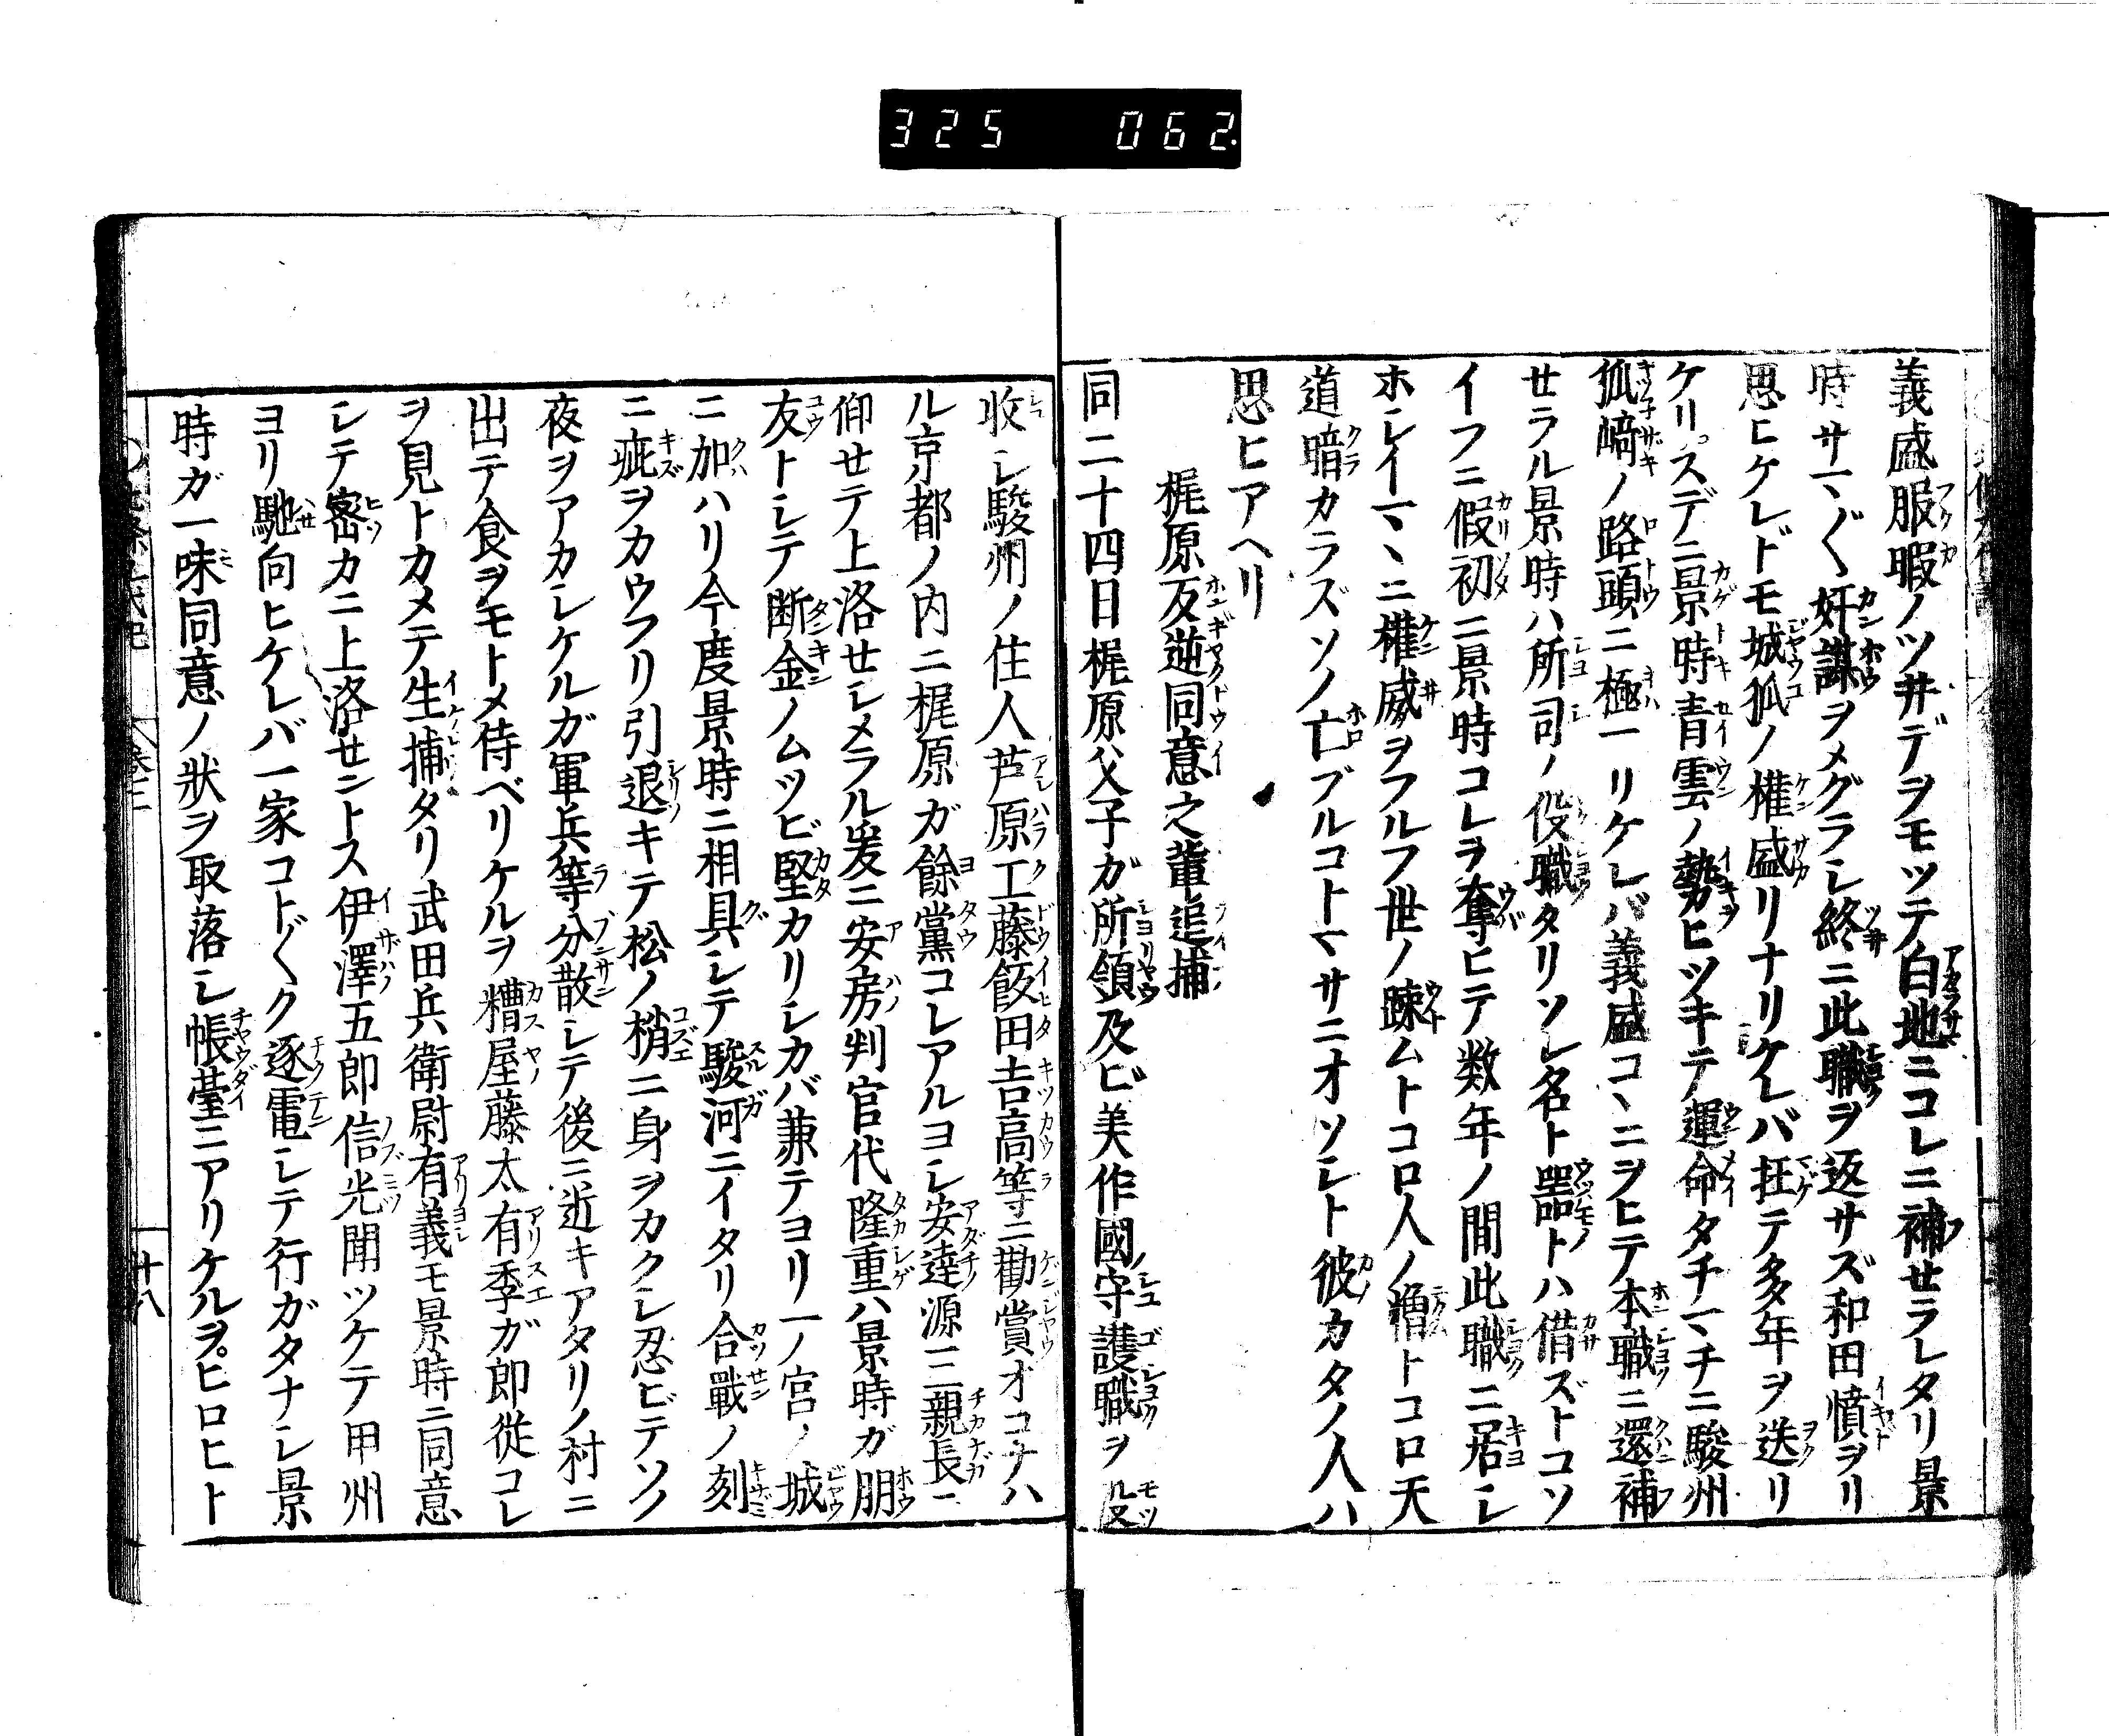 325 062
義盛服暇ノツ井デヲモツテ白地ニコレニ補せラレタリ景
時サマ〴〵奸謀ヲメグラし終ニ此職ヲ返サズ和田憤ヲリ
思ヒケレドモ城狐ノ権盛リナリケレバ抂テ多年ヲ送リ
ケリスデニ景時青雲ノ勢ヒツキテ運命タチマチニ駿州
狐﨑ノ路頭ニ極マリケレバ義盛コヽニヲヒテ本職ニ還補
せラル景時ハ所司ノ役職タリソレ名ト器トハ借ズトコソ
イフニ假初ニ景時コレヲ奪ヒテ数年ノ間此職ニ居シ
ホシイマヽニ権威ヲフルフ世ノ疎ムトコロ人ノ憎トコロ天
道暗カラズソノ亡ブルコトマサニオソシト彼カタノ人ハ
思ヒアヘリ
梶原反逆同意之輩追捕
同二十四日梶原父子ガ所領及ビ美作國守護職ヲ
收し駿州ノ住人芦原工藤飯田吉高等ニ勸賞オコナハ
ル京都ノ内ニ梶原ガ餘黨コレアルヨし安達源三親長ニ
仰せテ上洛せしメラル爰ニ安房判官代隆重ハ景時ガ朋
友トしテ断金ノムツビ堅カリしカバ兼テヨリ一ノ宮ノ城
ニ加ハリ今度景時ニ相具しテ駿河ニイタリ合戰ノ刻
ニ疵ヲカウフリ引退キテ松ノ梢ニ身ヲカクし忍ビテソノ
夜ヲアカしケルガ軍兵等分散しテ後ニ近キアタリノ村ニ
出テ食ヲモトメ侍ベリケルヲ糟屋藤太有季ガ郎従コレ
ヲ見トカメテ生捕タリ武田兵衛尉有義モ景時ニ同意
しテ密カニ上洛せントス伊澤五郎信光聞ツケテ甲州
ヨリ馳向ヒケレバ一家コト〴〵ク逐電しテ行ガタナし景
時ガ一味同意ノ狀ヲ取落し帳臺ニアリケルヲヒロヒト
十八